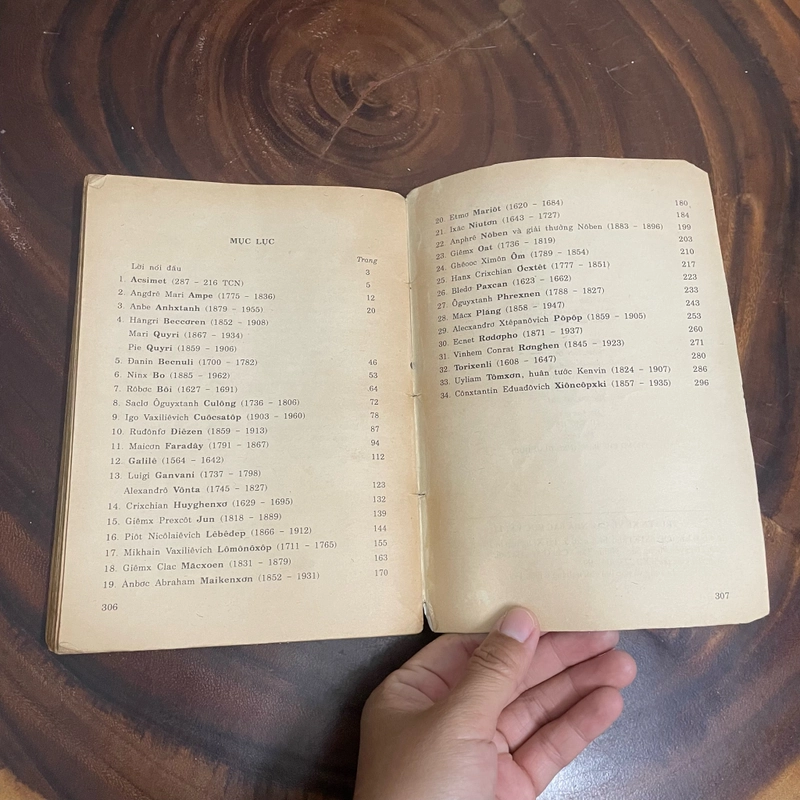 MỤC LỤC
Trang
Lời nói đầu 3
1. Acsimet (287 - 216 TCN) 5
2. Angđrê Mari Ampe (1775 - 1836) 12
3. Anbe Anhxtanh (1879 - 1955) 20
4. Hăngri Beccơren (1852 - 1908)
Mari Quyri (1867 - 1934)
Pie Quyri (1859 - 1906)
5. Đanin Becnuli (1700 - 1782) 46
6. Ninx Bo (1885 - 1962) 53
7. Rôbơc Bôi (1627 - 1691) 64
8. Saclơ Ôguyxtanh Culông (1736 - 1806) 72
9. Igo Vaxiliêvich Cuôcsatôp (1903 - 1960) 78
10. Ruđônfơ Điêzen (1859 - 1913) 87
11. Maicơn Farađây (1791 - 1867) 94
12. Galilê (1564 - 1642) 112
13. Luigi Ganvani (1737 - 1798)
Alexanđrô Vônta (1745 - 1827) 123
14. Crixchian Huyghenxơ (1629 - 1695) 132
15. Giêmx Prexcôt Jun (1818 - 1889) 139
16. Piôt Nicôlaiêvich Lêbêđep (1866 - 1912) 144
17. Mikhain Vaxiliêvich Lômônôxôp (1711 - 1765) 155
18. Giêmx Clac Măcxoen (1831 - 1879) 163
19. Anbơc Abraham Maikenxơn (1852 - 1931) 170
306
20. Etmơ Mariôt (1620 - 1684) 180
21. Ixăc Niutơn (1643 - 1727) 184
22. Anphrê Nôben và giải thưởng Nôben (1883 - 1896) 199
23. Giêmx Oat (1736 - 1819) 203
24. Ghêooc Ximôn Ôm (1789 - 1854) 210
25. Hanx Crixchian Ôcxtêt (1777 - 1851) 217
26. Bleđơ Paxcan (1623 - 1662) 223
27. Ôguyxtanh Phrexnen (1788 - 1827) 233
28. Măcx Plăng (1858 - 1947) 243
29. Alecxanđrơ Xtêpanôvich Pôpôp (1859 - 1905) 253
30. Ecnet Rơđơpho (1871 - 1937) 260
31. Vinhem Conrat Rơnghen (1845 - 1923) 271
32. Torixenli (1608 - 1647) 280
33. Uyliam Tômxơn, huân tước Kenvin (1824 - 1907) 286
34. Cônxtantin Eđuađôvich Xiôncôpxki (1857 - 1935) 296
307